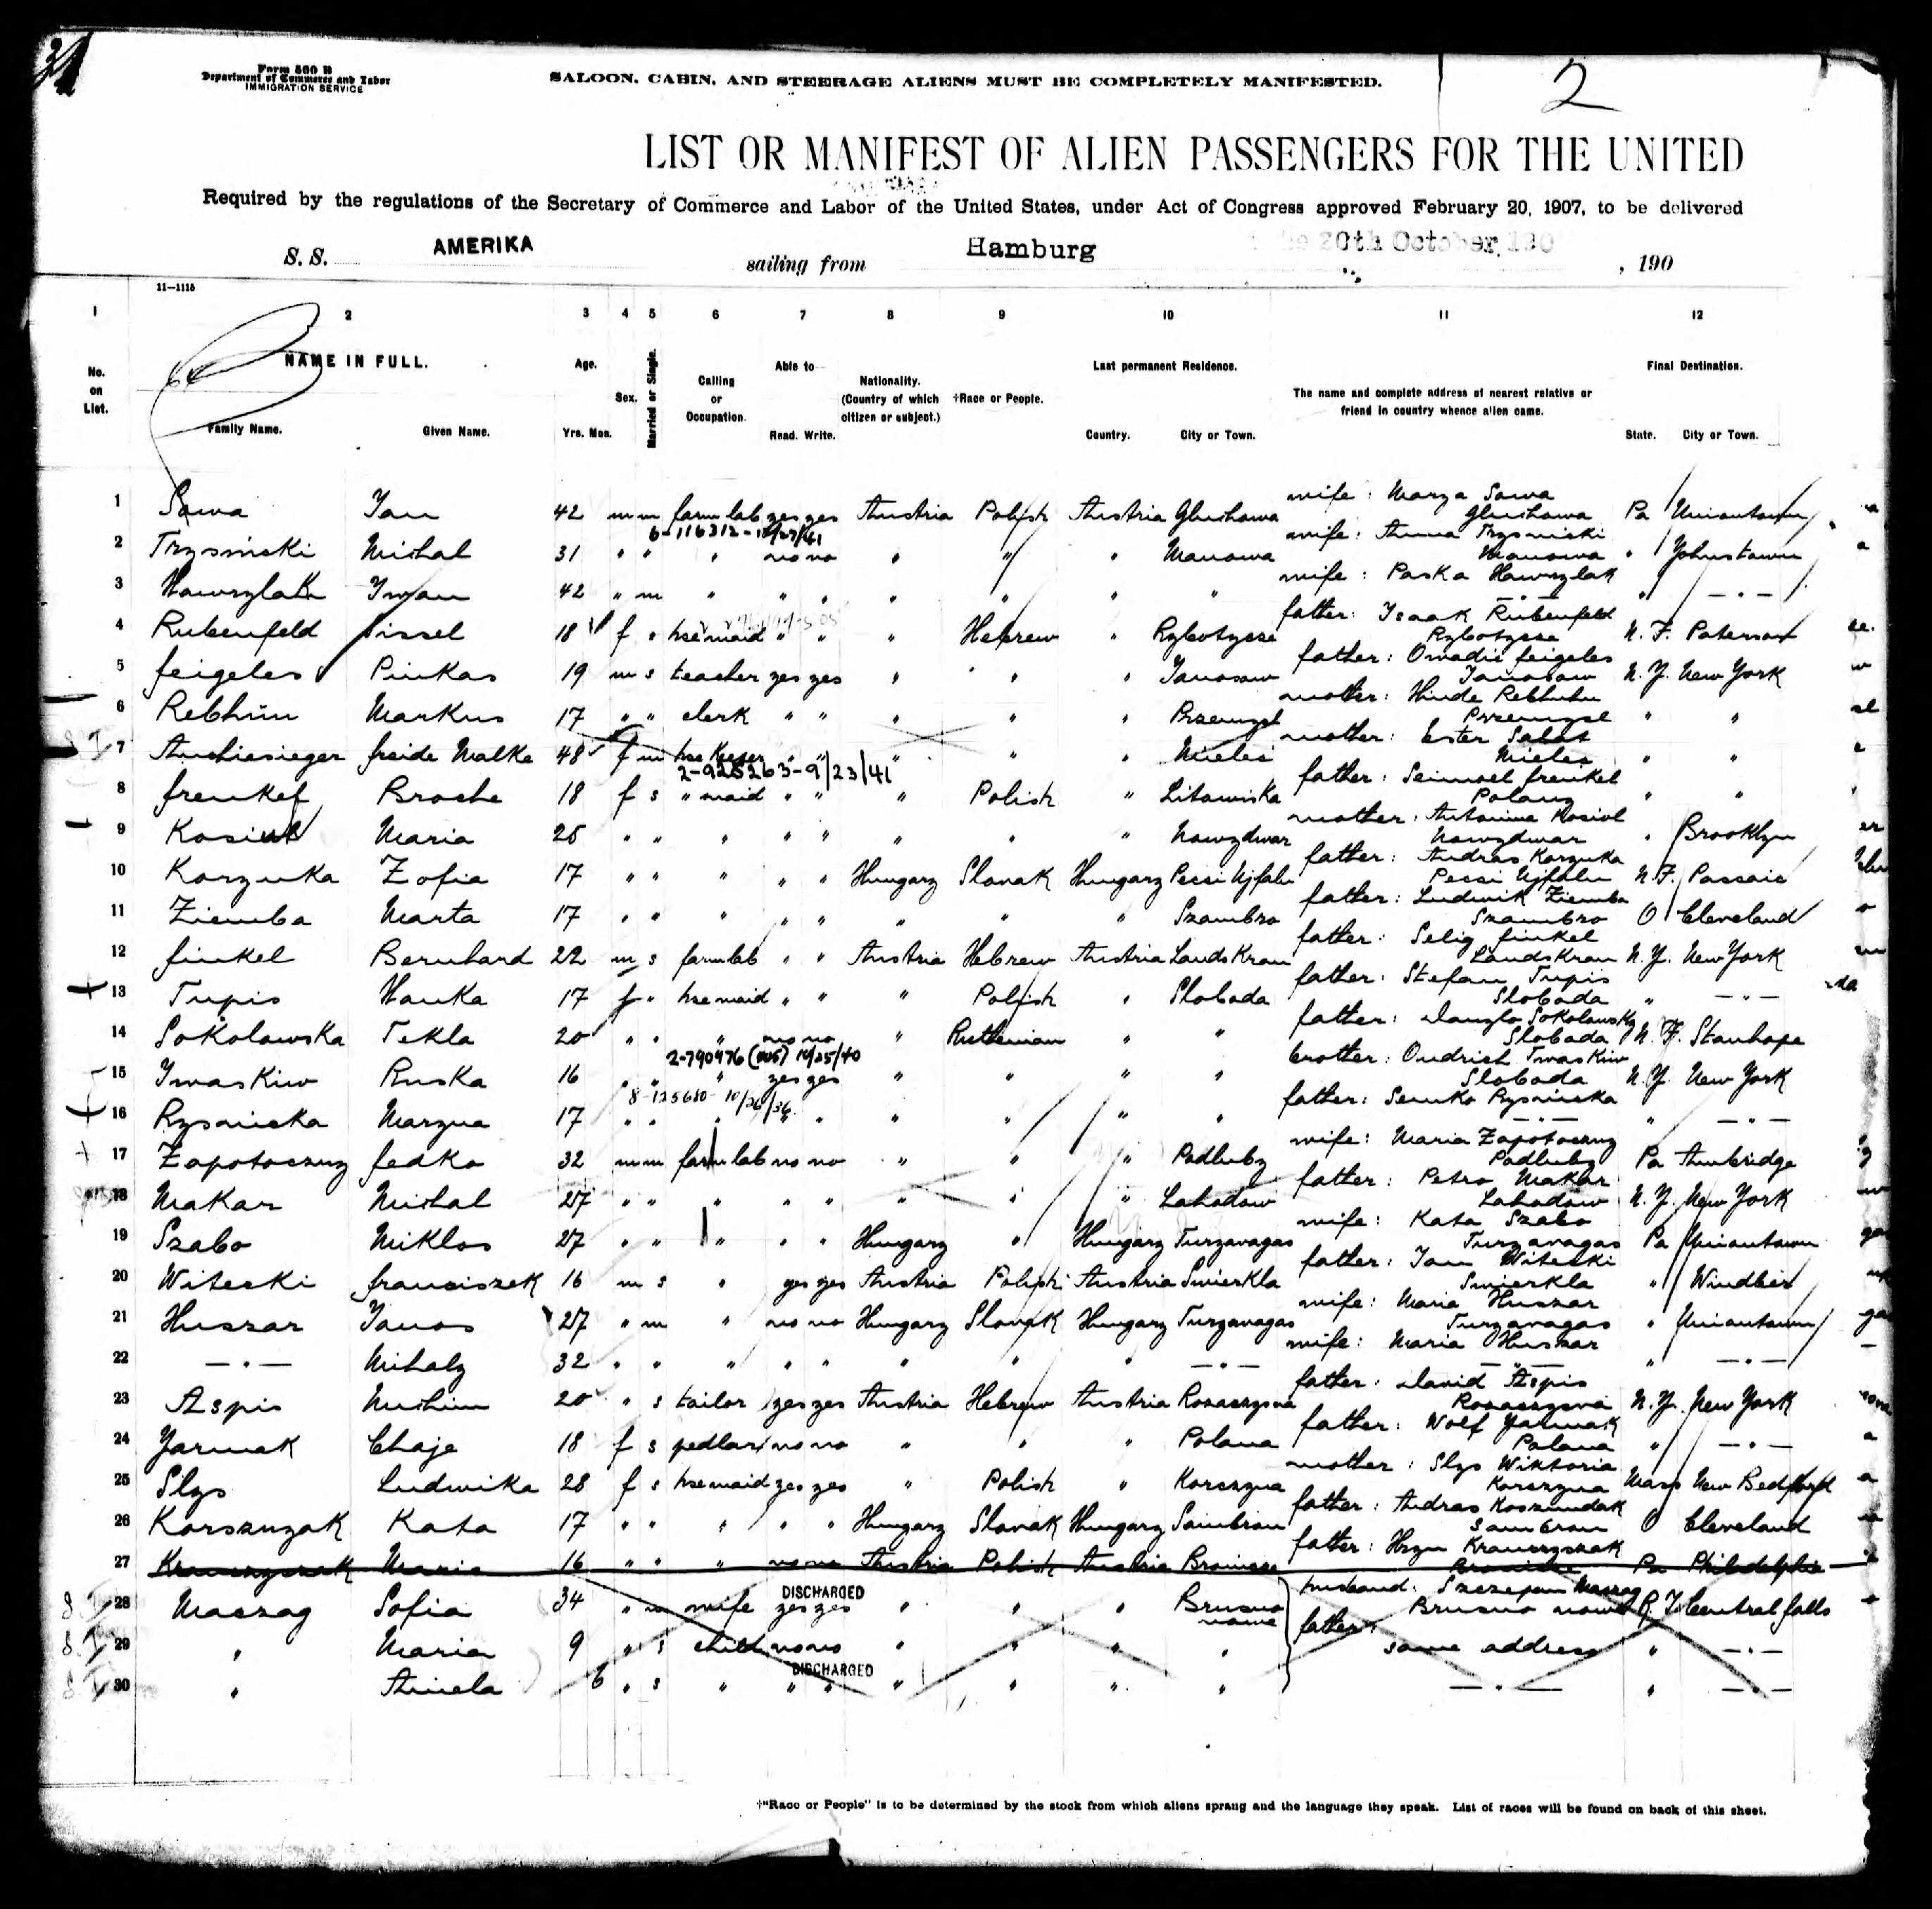 31
Form 500 B
Department of Commerce and Labor
IMMIGRATION SERVICE
SALOON, CABIN, AND STEERAGE ALIENS MUST BE COMPLETELY MANIFESTED.
2
LIST OR MANIFEST OF ALIEN PASSENGERS FOR THE UNITED
Required by the regulations of the Secretary of Commerce and Labor of the United States, under Act of Congress approved February 20, 1907, to be delivered
S. S. AMERIKA sailing from Hamburg 20th October, 190 , 190
11—1115
1 2 3 4 5 6 7 8 9 10 11 12
No. on List.
NAME IN FULL.
Family Name. Given Name.
Age.
Yrs. Mos.
Sex.
Married or Single.
Calling or Occupation.
Able to
Read. Write.
Nationality. (Country of which citizen or subject.)
†Race or People.
Last permanent Residence.
Country. City or Town.
The name and complete address of nearest relative or friend in country whence alien came.
Final Destination.
State. City or Town.
wife: Marya Sowa
1 Sowa Jan 42 m m farm lab yes yes Austria Polish Austria Gluchowa Gluchowa Pa Uniontown
6-116312-
wife: Anna Trysnicki
2 Trysnicki Michal 31 " " " no no " " " Manowa Manowa " Johnstown
wife: Paska Hawrylak
3 Hawrylak Iwan 42 " m " " " " " " " —"— " —"—
father: Isaak Rubenfeld
4 Rubenfeld Sissel 18 f " hsemaid " " " Hebrew " Rybotycze Rybotycze N. J. Paterson
father: Owadie feigeles
5 feigeles Pinkas 19 m s teacher yes yes " " " Janosow Janosow N. Y. New York
mother: Hinde Rebhuhn
6 Rebhun Markus 17 " " clerk " " " " " Przemysl Przemysl " "
mother: Ester Salat
7 freide Malke 48 f m hse keeper " " " " " Mielec Mielec " "
2-925263-9/23/41
father: Seimoel frenkel
8 frenkel Broche 18 f s " maid " " " Polish " Litowiska " "
mother: Antonina Kosiol
9 Maria 25 " " " " " " " " Nowydwor Nowydwor " Brooklyn
father: Andras Korzuka
10 Korzuka Zofia 17 " " " " " Hungary Slovak Hungary Pecsi Ujfalu Pecsi Ujfalu N. J. Passaic
father: Ludwik Ziemba
11 Ziemba Marta 17 " " " " " " " " Szambro Szambro O Cleveland
father: Selig finkel
12 finkel Bernhard 22 m s farm lab " " Austria Hebrew Austria Landskron Landskron N. Y. New York
father: Stefan Tupis
13 Tupis Hanka 17 f " hsemaid " " " Polish " Sloboda Sloboda " —"—
father: Danylo Sokolowsky
14 Sokolowska Tekla 20 " " " no no " Ruthenian " " Sloboda N. J. Stanhope
2-790976 (005) 10/25/40
brother: Ondrich Iwaskiw
15 Iwaskiw Ruska 16 " " " yes yes " " " " Sloboda N. Y. New York
8-125680-10/26/36
father: Senko Rysnicka
16 Rysnicka Marya 17 " " " " " " " " " —"— " —"—
wife: Maria Zapotoczny
17 Zapotoczny fedko 32 m m farm lab no no " " " Podluby Podluby Pa Ambridge
father: Petro Makar
18 Makar Michal 27 " " " " " " " " Lahodow Lahodow N. Y. New York
wife: Kata Szabo
19 Szabo Miklos 27 " " " " " Hungary " Hungary Turzavagas Turzavagas Pa Uniontown
father: Jan Witecki
20 Witecki franciszek 16 m s " yes yes Austria Polish Austria Swierkla Swierkla " Windber
wife: Maria Huszar
21 Huszar Janos 27 " m " no no Hungary Slovak Hungary Turzavagas Turzavagas " Uniontown
wife: Maria Huszar
22 —"— Mihaly 32 " " " " " " " " —"— —"— " —"—
father: David Aspis
23 Aspis Nuchim 20 " s tailor yes yes Austria Hebrew Austria N. Y. New York
father: Wolf Jarmak
24 Jarmak Chaje 18 f s pedlar no no " " " Polana Polana " —"—
mother: Slys Wiktoria
25 Slys Ludwika 28 f s hsemaid yes yes " Polish " Korczyna Korczyna Mass New Bedford
father: Andras
26 Kata 17 " " " " " Hungary Slovak Hungary Sambron Sambron O Cleveland
father: Hryn Krawczyszak
27 Krawczyszak Maria 16 " " " no no Austria Polish Austria Pa Philadelphia
DISCHARGED
husband: Szczepan Maczag
28 Maczag Sofia 34 " m wife yes yes " " " Brusno nowe Brusno nowe R. I. Central falls
father:
29 " Maria 9 " s child no no " " " " same address " —"—
DISCHARGED
30 " Aniela 6 " s " " " " " " " —"— " —"—
†"Race or People" is to be determined by the stock from which aliens sprang and the language they speak. List of races will be found on back of this sheet.